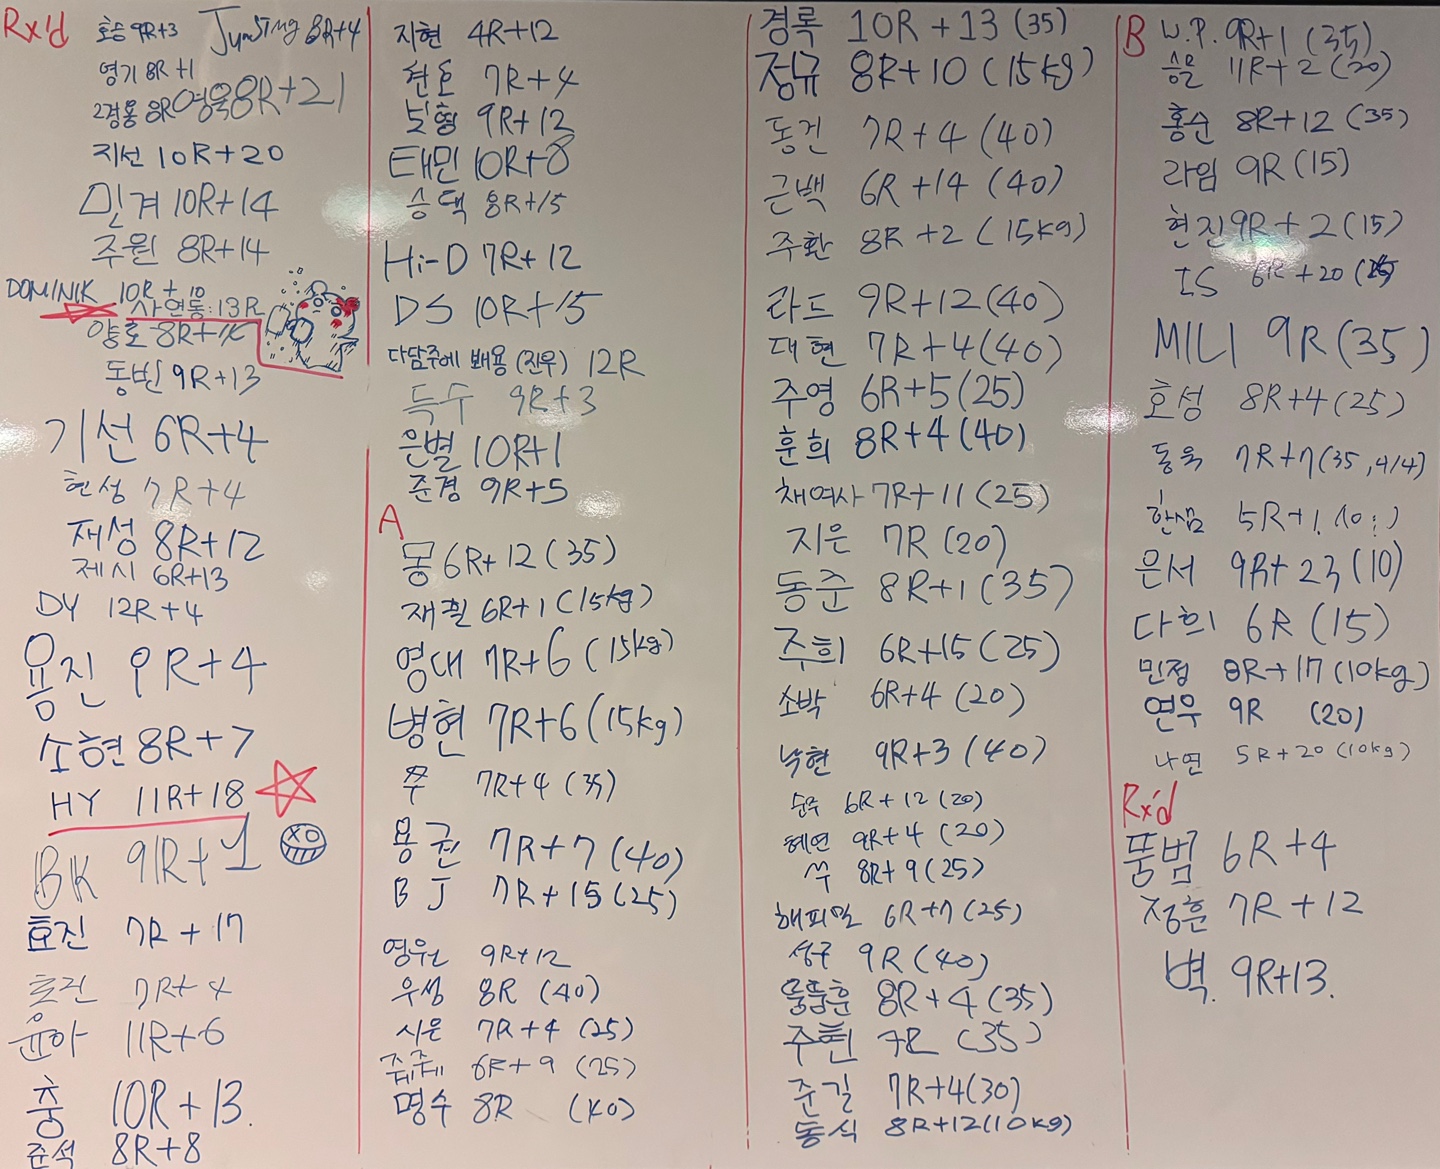 Rx'd
호승 9R+3
Junsing 8R+4
영기 8R+1
2경용 8R
여욱 8R+21
지선 10R+20
민계 10R+14
주원 8R+14
DOMINIK 10R+10
사연동:13R
양호 8R+1
동빈 9R+13
기선 6R+4
현성 7R+4
재성 8R+12
제시 6R+13
DY 12R+4
용진 9R+4
소현 8R+7
HY 11R+18
XO
BK 9R+1
효진 7R+17
7R+4
윤아 11R+6
충 10R+13
준석 8R+8
지현 4R+12
7R+4
보형 9R+12
태민 10R+8
승택 8R+15
Hi-D 7R+12
DS 10R+15
다담주에 봬용 (진우) 12R
득수 9R+3
은별 10R+1
준경 9R+5
A
몽 6R+12 (35)
재휠 6R+1 (15kg)
영대 7R+6 (15kg)
병현 7R+6 (15kg)
쭈 7R+4 (35)
용권 7R+7 (40)
BJ 7R+15 (25)
영원 9R+12
우성 8R (40)
시은 7R+4 (25)
쥬쥬 6R+9 (25)
명수 8R (40)
경록 10R+13 (35)
정규 8R+10 (15kg)
동건 7R+4 (40)
근백 6R+14 (40)
주환 8R+2 (15kg)
라드 9R+12 (40)
대현 7R+4 (40)
주영 6R+5 (25)
훈희 8R+4 (40)
채여사 7R+11 (25)
지은 7R (20)
동준 8R+1 (35)
주희 6R+15 (25)
소박 6R+4 (20)
낙현 9R+3 (40)
순주 6R+12 (20)
혜연 9R+4 (20)
쑤 8R+9 (25)
해피밀 6R+7 (25)
성구 9R (40)
뚱뚱훈 8R+4 (35)
주현 7R (35)
준길 7R+4 (30)
동식 8R+12 (10kg)
B
W.P. 9R+1 (35)
승문 11R+2 (20)
홍순 8R+12 (35)
라임 9R (15)
현진 9R+2 (15)
IS 6R+20
MILI 9R (35)
호성 8R+4 (25)
동욱 7R+7 (35, 4/4)
한샘 5R+1
은서 9R+23 (10)
다희 6R (15)
민정 8R+17 (10kg)
연우 9R (20)
나연 5R+20 (10kg)
Rx'd
뚱범 6R+4
정훈 7R+12
벽. 9R+13.